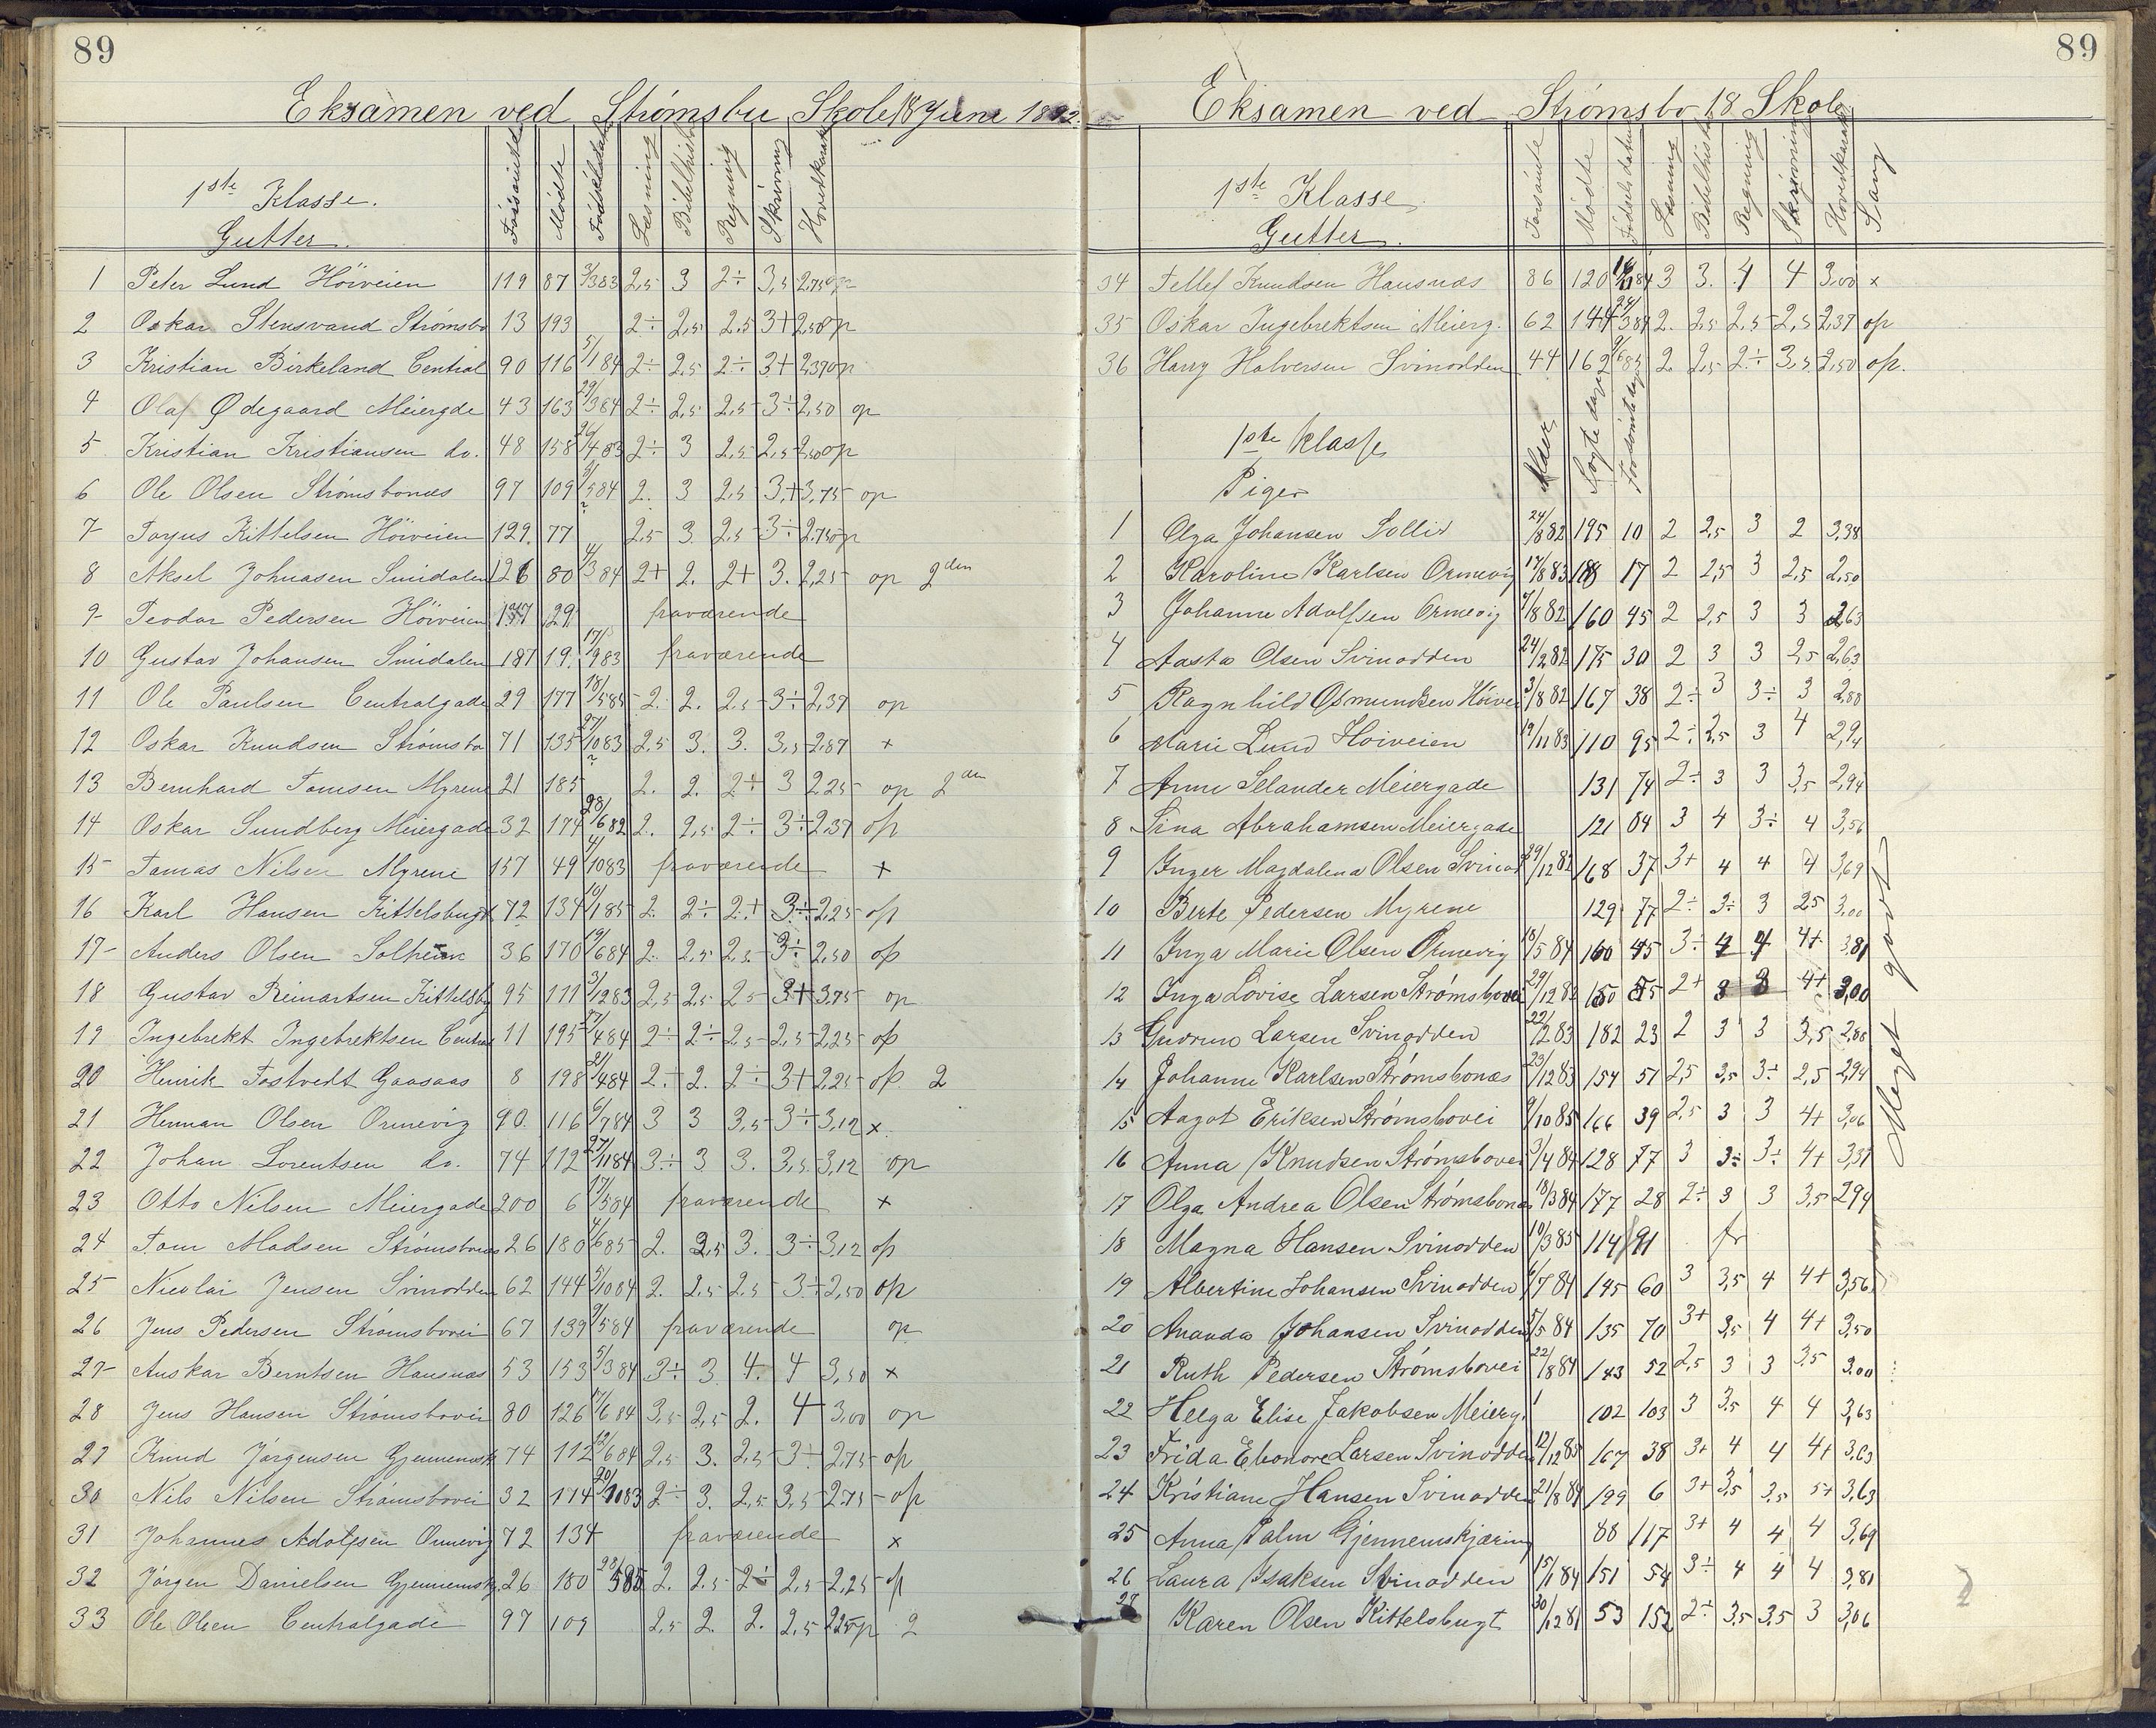 89
Eksamen ved Strømsbu Skole 18 Juni 1892.
1ste Klasse.
Gutter.
Forsømte Mødte Fødselsdatum Læsning Bibelhist Regning Skrivning Hovedkarakt
1 Peter Lund Höiveien 119 87 3/3 83 2,5 3 2÷ 3,5 2,75 op
2 Oskar Stensvand Strømsbo 13 193 2÷ 2,5 2,5 3+ 2,50 op
3 Kristian Birkeland Central 90 116 5/1 84 2÷ 2,5 2÷ 3+ 2,37 op
4 Olaf Ødegaard Meiergde 43 163 29/3 84 2÷ 2,5 2,5 3÷ 2,50 op
5 Kristian Kristiansen do. 48 158 26/4 83 2÷ 3 2,5 2,5 2,50 op
6 Ole Olsen Strømsbonæs 97 109 6/5 84 2. 3 2,5 3,+ 3,75 op
7 Torjus Kittelsen Höiveien 129. 77 ? 2,5 3. 2,5 3÷ 2,75 op
8 Aksel Johnasen Smidalen 126 80 4/3 84 2+ 2. 2+ 3. 2,25 op 2den
9 Teodor Pedersen Höiveien 177 29 fraværende
10 Gustav Johansen Smidalen 187 19. 17/9 83 fraværende
11 Ole Paulsen Centralgade 29 177 18/5 85 2. 2. 2,5 3÷ 2,37 op
12 Oskar Knudsen Strømsbo 71 135 27/10 83 2,5 3. 3. 3,5 2,87 +
13 Bernhard Tomsen Myrene 21 185 ? 2. 2. 2÷ 3 2,25 op 2den
14 Oskar Sundberg Meiergade 32 174 28/6 82 2. 2,5 2÷ 3÷ 2,37 op
15 Tomas Nilsen Myrene 157 49 4/10 83 fraværende +
16 Karl Hansen Kittelsbugt 72 134 10/1 85 2. 2÷ 2+ 3÷ 2,25 op
17 Anders Olsen Solheim 36 170 19/6 84 2. 2,5 2,5 3÷ 2,50 op
18 Gustav Reinartsen Kittelsbg 95 111 3/12 83 2,5 2,5 2,5 3+ 3,75 op
19 Ingebrekt Ingebrektsen Central 11 195 17/4 84 2÷ 2÷ 2,5 2,5 2,25 op
20 Henrik Tostvedt Gaasaas 8 198 21/4 84 2+ 2. 2÷ 3+ 2,25 op. 2
21 Herman Olsen Ormevig 90. 116 6/7 84 3 3 3,5 3÷ 3,12 x
22 Johan Lorentsen do. 74 112 27/11 84 3÷ 3 3. 3,5 3,12 op
23 Otto Nilsen Meiergade 200 6 17/5 84 fraværende +
24 Tom Madsen Strømsbonæs 26 180 4/6 85 2. 2,5 3. 3÷ 3,12 op
25 Nicolai Jensen Svinodden 62 144 5/10 84 2. 2,5 2,5 3÷ 2,50 op
26 Jens Pedersen Strømsbovei 67 139 9/5 84 fraværende op
27 Anskar Berntsen Hansnæs 53 153 5/3 84 3÷ 3 4. 4 3,50 x
28 Jens Hansen Strømsbovei 80 126 17/6 84 3,5 2,5 2. 4 3,00 op
29 Knud Jørgensen Gjennemsk 74 112 12/6 84 2,5 3. 2,5 3÷ 2,75 op
30 Nils Nilsen Strømsbovei 32 174 20/11 83 2÷ 3. 2,5 3,5 2,75 op
31 Johannes Adolfsen Ormevig 72 134 fraværende x
32 Jørgen Danielsen Gjennemskj. 26 180 28/5 85 2. 2,5 2÷ 2,5 2,25 op
33 Ole Olsen Centralgade 97 109 2,5 2. 2. 2,5 2,25 op 2
89
Eksamen ved Strømsbo 18 Skole
1ste Klasse
Gutter.
Forsømte Mødte Fødselsdatum Læsning Bibelhist Regning Skrivning Hovedkarakt Sang
34 Tellef Knudsen Hansnæs 86 120 84 3 3. 4 4 3,00 x
35 Oskar Ingebrektsen Meierg. 62 144 24/3 84 2. 2,5 2,5 2,5 2,37 op
36 Harry Halversen Svinodden 44 162 9/6 85 2. 2,5 2÷ 3,5 2,50 op.
1ste Klasse
Piger
Alder Søgte dage Forsømte dage
1 Olga Johansen Sollid 24/8 82 195 10 2 2,5 3 2 3,38
2 Karoline Karlsen Ormevig 17/8 83 188 17 2 2,5 3 2,5 2,50
3 Johanne Adolfsen Ormevig 7/8 82 160 45 2 2,5 3 3 2,63
4 Aasta Olsen Svinodden 24/2 82 175 30 2 3 3 2,5 2,63
5 Ragnhild Osmundsen Höivei 3/8 82 167 38 2÷ 3 3÷ 3 2,88
6 Marie Lund Hoiveien 19/11 83 110 95 2÷ 2,5 3 4 2,94
7 Anne Selander Meiergade 131 74 2÷ 3 3 3,5 2,94
8 Sina Abrahamsen Meiergade 121 84 3 4 3÷ 4 3,56
9 Inger Magdalena Olsen Svinod 29/12 82 168 37 3+ 4 4 4 3,69
10 Berte Pedersen Myrene 129 77 2÷ 3÷ 3 2,5 3,00
11 Inga Marie Olsen Ormevig 18/5 84 160 45 3÷ 4 4 4+ 3,81
12 Inga Lovise Larsen Strømsbovei 29/12 83 150 55 2+ 3 3 4+ 3,00
13 Gudrun Larsen Svinodden 22/2 83 182 23 2 3 3 3,5 2,88
14 Johanne Karlsen Strømsbonæs 23/12 83 154 51 2,5 3,5 3÷ 2,5 2,94
15 Aagot Eriksen Strømsbovei 9/10 85 166 39 2,5 3 3 4+ 3,06
16 Anna Knudsen Strømsbovei 3/4 84 128 77 3 3÷ 3÷ 4+ 3,31
17 Olga Andrea Olsen Strømsbonæs 18/3 84 177 28 2÷ 3 3 3,5 2,94
18 Magna Hansen Svinodden 10/3 85 114 91 fr
19 Albertine Johansen Svinodden 6/7 84 145 60 3 3,5 4 4+ 3,56
20 Ananda Johansen Svinodden 5/5 84 135 70 3+ 3,5 4 4+ 3,50
21 Ruth Pedersen Strømsbovei 22/8 84 143 52 2,5 3 3 3,5 3,00
22 Helga Elise Jakobsen Meierg. 102 103 3 3,5 4 4 3,63
23 Frida Elonore Larsen Svinodden 12/12 83 167 38 3+ 4 4 4+ 3,63
24 Kristiane Hansen Svinodden 21/8 84 199 6 3+ 3,5 3,5 5+ 3,63
25 Anna Palm Gjennemskjæring 88 117 3+ 4 4 4 3,69
26 Laura Isaksen Svinodden 15/1 84 151 54 3÷ 4 4 4 3,81
27 Karen Olsen Kittelsbugt 30/12 81 53 152 2÷ 3,5 3,5 3 3,06
Meget godt
2